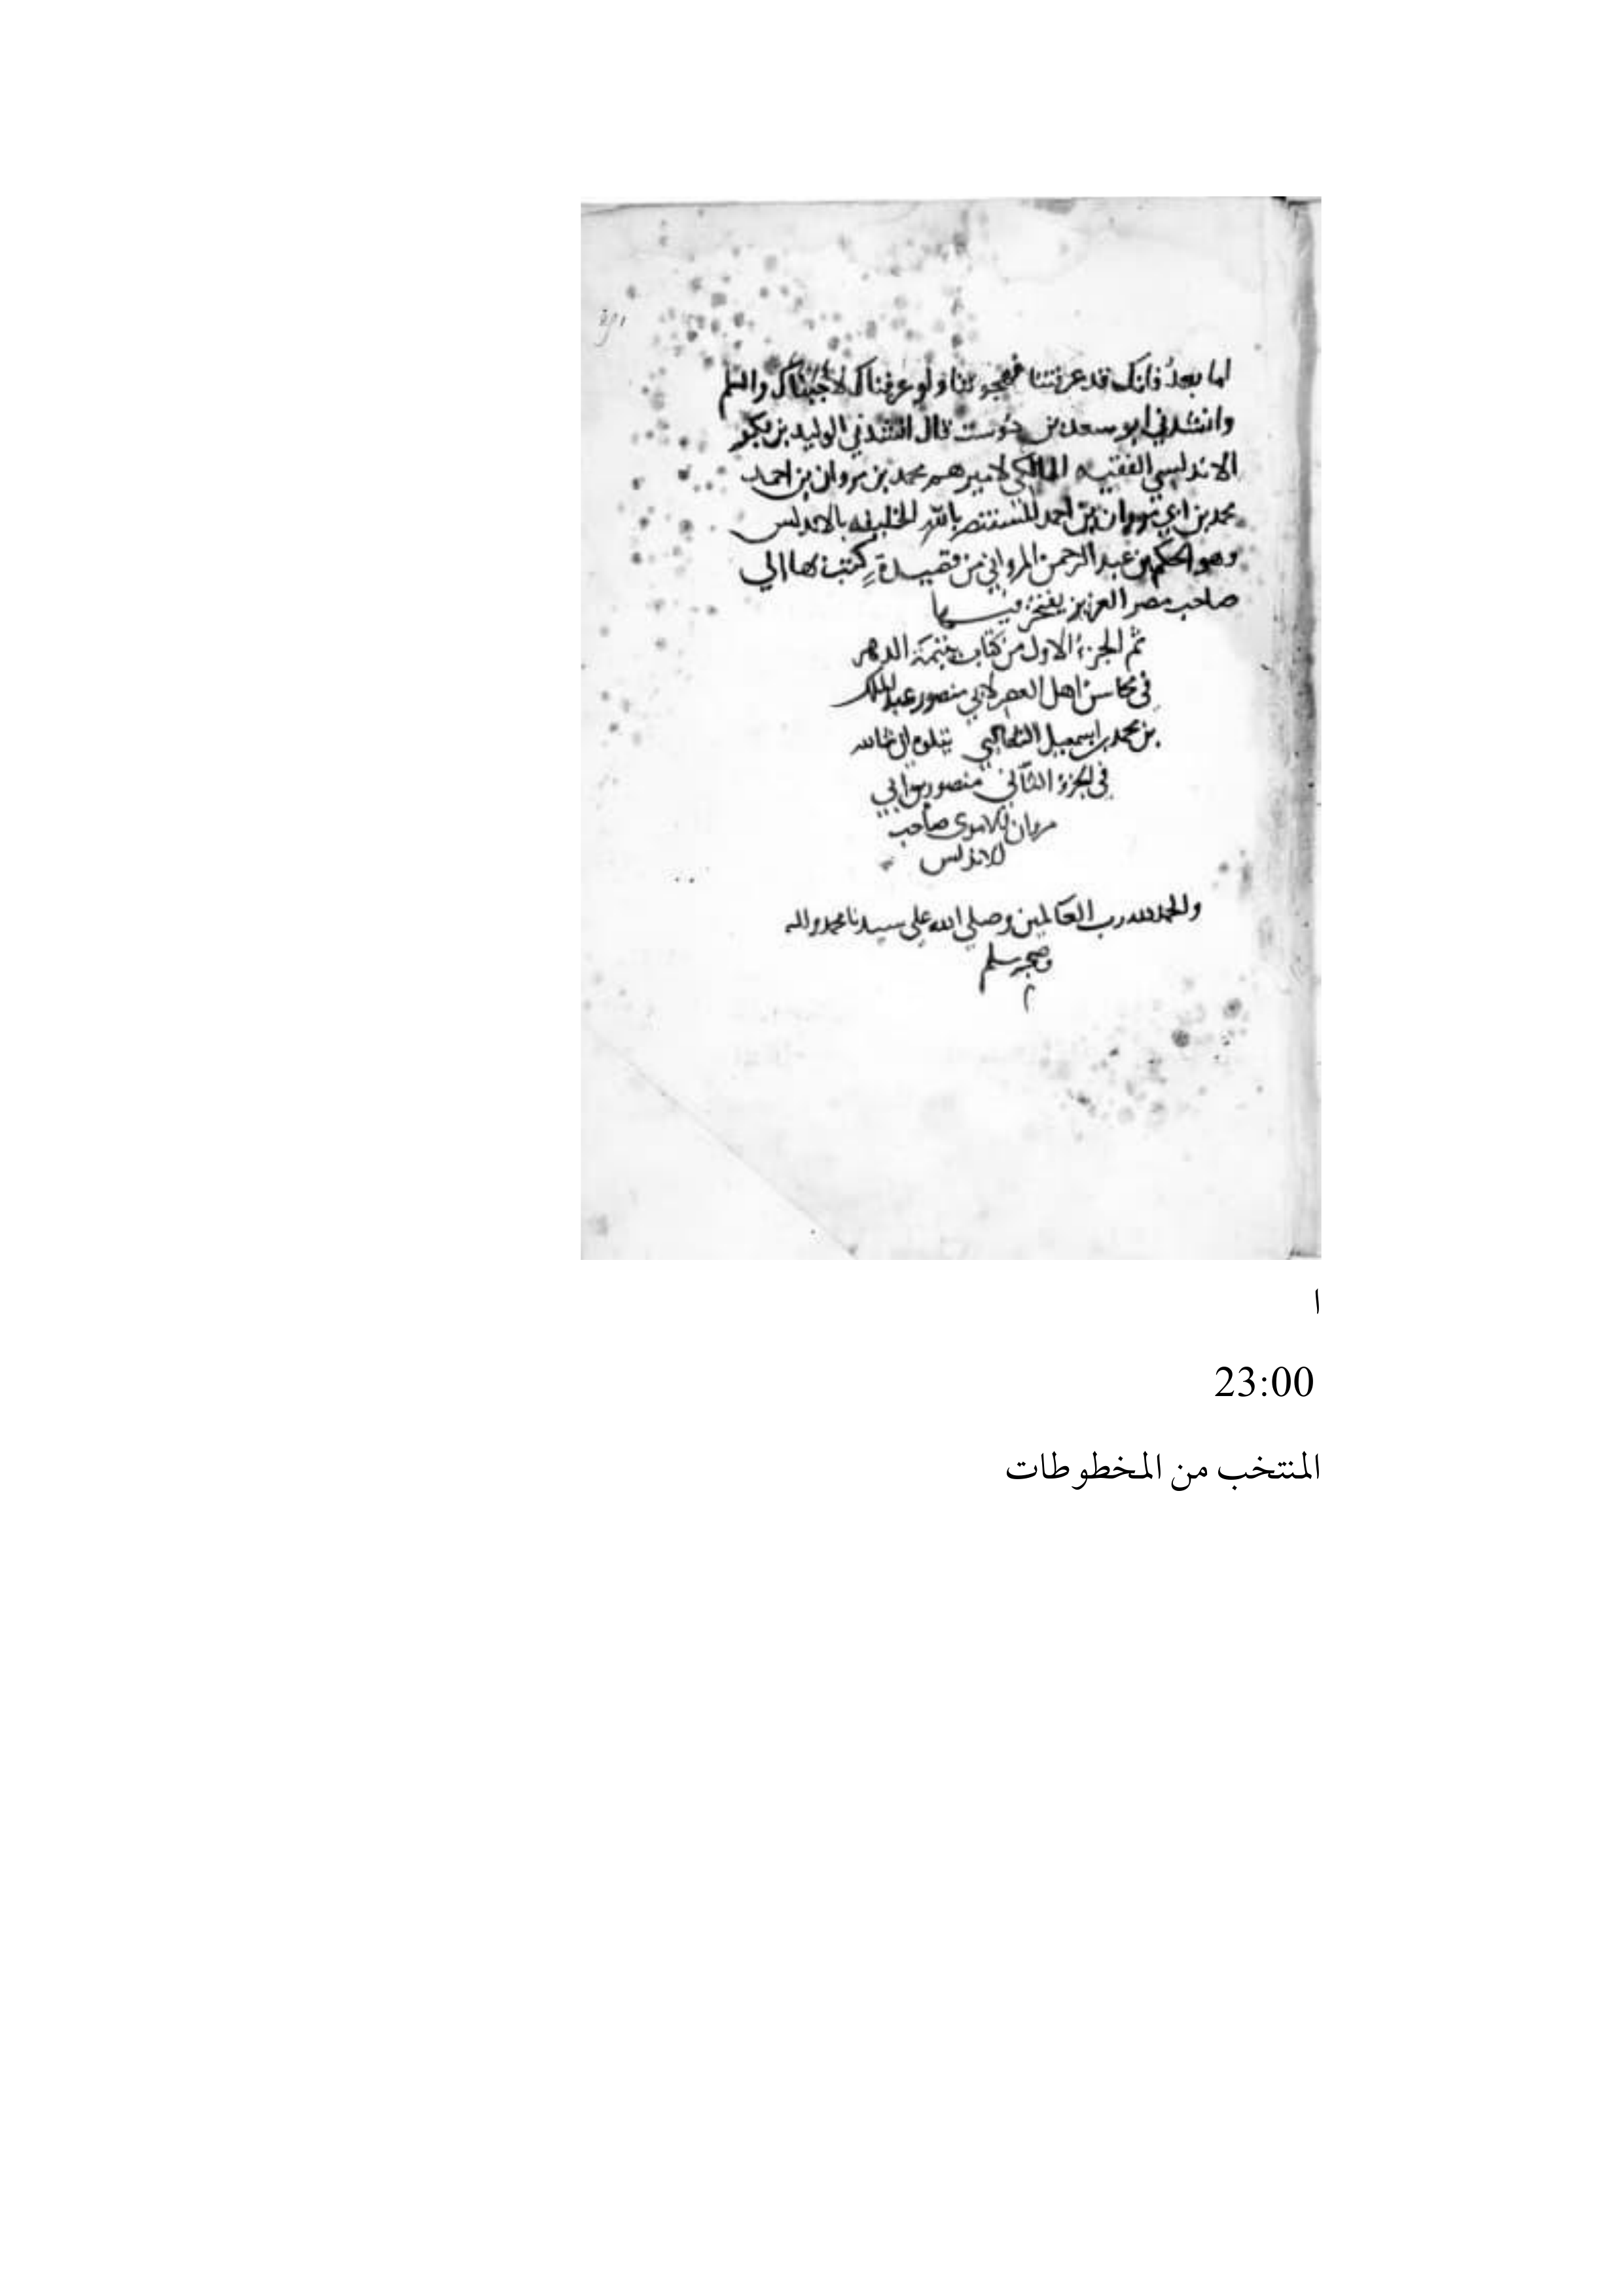 اما بعد فانك قد عرفتنا فهجوتنا ولو عرفناك لأجبناك والسلم
وانشدني ابو سعد بن دوست قال انشدني الوليد بن بكر
الاندلسي الفقيه المالكي لاميرهم محمد بن مروان بن احمد
محمد بن ابي مروان بن احمد المستنصر بالله الخليفه بالاندلس
وهو الحكم بن عبد الرحمن المرواني من قصيدة كتب بها الي
صاحب مصر العزيز يفتخر فيها
تم الجزء الاول من كتاب يتيمة الدهر
في محاسن اهل العصر لابي منصور عبد الملك
بن محمد بن اسمعيل الثعالبي يتلوه ان شا الله
في الجزء الثاني منصور بن ابي
مروان الاموي صاحب
الاندلس
والحمد لله رب العالمين وصلي الله علي سيدنا محمد واله
وصحبه وسلم
م
ا
23:00
المنتخب من المخطوطات